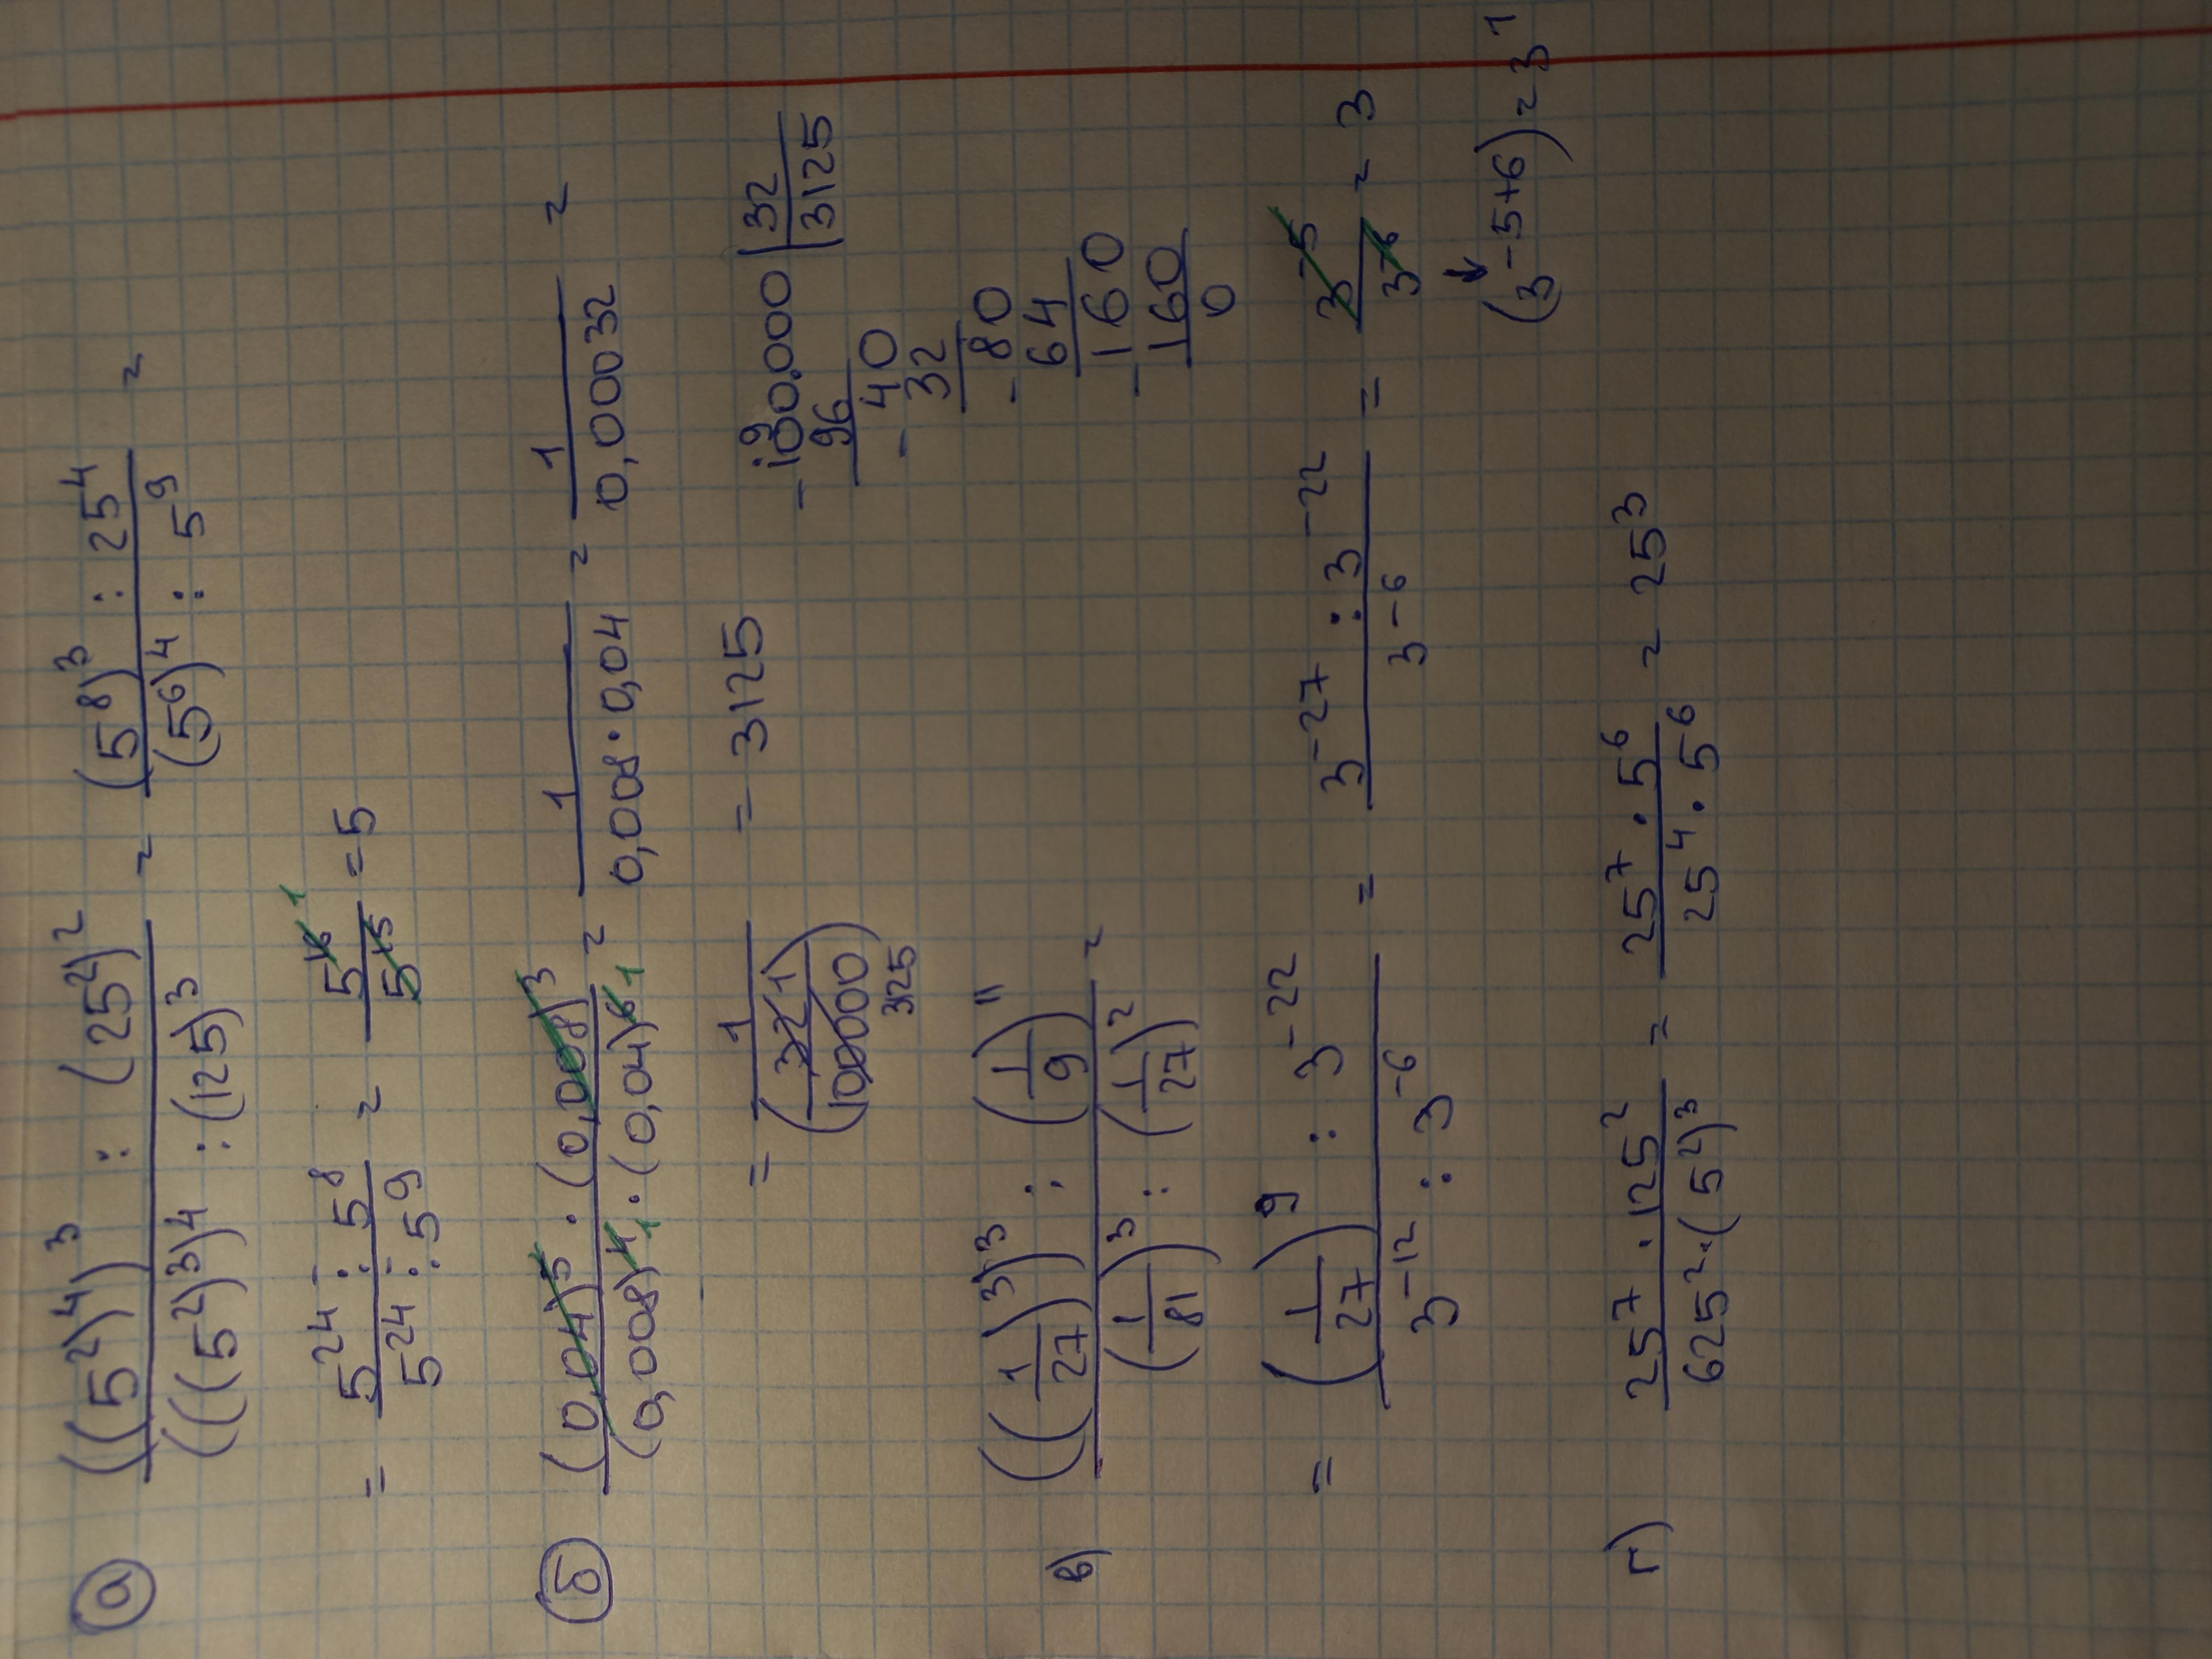 а) ((5²)⁴)³ : (25²)² / (((5²)³)⁴ : (125)³ = (5⁸)³ : 25⁴ / (5⁶)⁴ : 5⁹ =
= 5²⁴ : 5⁸ / 5²⁴ : 5⁹ = 5¹⁶ ¹ / 5¹⁵ = 5
б) (0,04)⁵ · (0,008)³ / (0,008)⁴ ₁ · (0,04)⁶ ₁ = 1 / 0,008 · 0,04 = 1 / 0,00032 =
= 1 / (32 1 / 100000 3125) = 3125
100.000 | 32
96 | 3125
- 40
32
- 80
64
- 160
160
0
в) ((1/27)³)³ : (1/9)¹¹ / (1/81)³ : (1/27)² =
= (1/27)⁹ : 3⁻²² / 3⁻¹² : 3⁻⁶ = 3⁻²⁷ : 3⁻²² / 3⁻⁶ = 3⁻⁵ / 3⁻⁶ = 3
(3⁻⁵⁺⁶) = 3¹
г) 25⁷ · 125² / 625² · (5²)³ = 25⁷ · 5⁶ / 25⁴ · 5⁶ = 25³